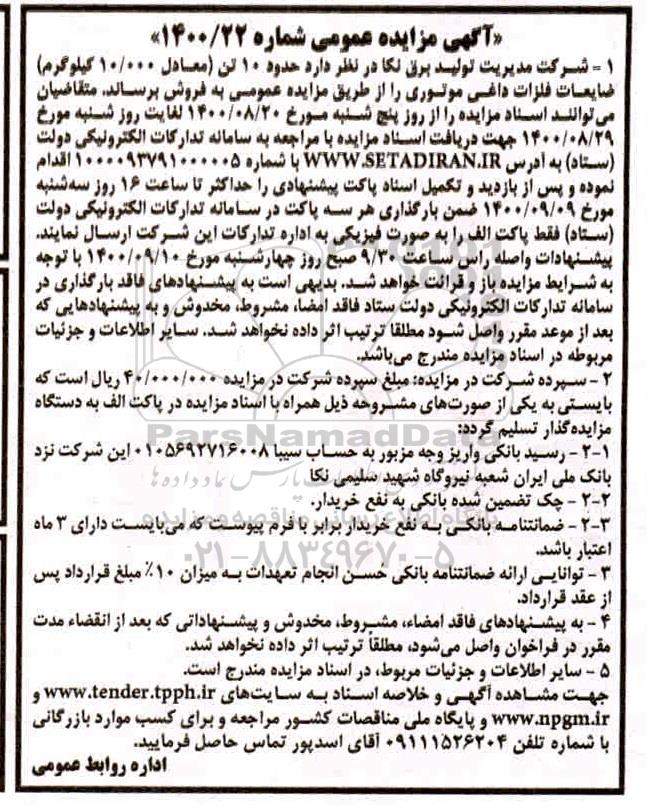 «آگهی مزایده عمومی شماره ۱۴۰۰/۲۲»
۱ – شرکت مدیریت تولید برق نکا در نظر دارد حدود ۱۰ تن (معادل ۱۰/۰۰۰ کیلوگرم)
ضایعات فلزات داغی موتوری را از طریق مزایده عمومی به فروش برساند. متقاضیان
می‌توانند اسناد مزایده را از روز پنج شنبه مورخ ۱۴۰۰/۰۸/۲۰ لغایت روز شنبه مورخ
۱۴۰۰/۰۸/۲۹ جهت دریافت اسناد مزایده با مراجعه به سامانه تدارکات الکترونیکی دولت
(ستاد) به آدرس WWW.SETADIRAN.IR با شماره ۱۰۰۰۰۹۳۷۹۱۰۰۰۰۰۵ اقدام
نموده و پس از بازدید و تکمیل اسناد پاکت پیشنهادی را حداکثر تا ساعت ۱۶ روز سه‌شنبه
مورخ ۱۴۰۰/۰۹/۰۹ ضمن بارگذاری هر سه پاکت در سامانه تدارکات الکترونیکی دولت
(ستاد) فقط پاکت الف را به صورت فیزیکی به اداره تدارکات این شرکت ارسال نمایند.
پیشنهادات واصله راس ساعت ۹/۳۰ صبح روز چهارشنبه مورخ ۱۴۰۰/۰۹/۱۰ با توجه
به شرایط مزایده باز و قرائت خواهد شد. بدیهی است به پیشنهادهای فاقد بارگذاری در
سامانه تدارکات الکترونیکی دولت ستاد فاقد امضا، مشروط، مخدوش و به پیشنهادهایی که
بعد از موعد مقرر واصل شود مطلقا ترتیب اثر داده نخواهد شد. سایر اطلاعات و جزئیات
مربوطه در اسناد مزایده مندرج می‌باشد.
۲ – سپرده شرکت در مزایده: مبلغ سپرده شرکت در مزایده ۴۰/۰۰۰/۰۰۰ ریال است که
بایستی به یکی از صورت‌های مشروحه ذیل همراه با اسناد مزایده در پاکت الف به دستگاه
مزایده‌گذار تسلیم گردد:
۲-۱ – رسید بانکی واریز وجه مزبور به حساب سیبا ۰۱۰۵۶۹۲۷۱۶۰۰۸ این شرکت نزد
بانک ملی ایران شعبه نیروگاه شهید سلیمی نکا
۲-۲ – چک تضمین شده بانکی به نفع خریدار.
۲-۳ – ضمانتنامه بانکی به نفع خریدار برابر با فرم پیوست که می‌بایست دارای ۳ ماه
اعتبار باشد.
۳ – توانایی ارائه ضمانتنامه بانکی حسن انجام تعهدات به میزان ۱۰٪ مبلغ قرارداد پس
از عقد قرارداد.
۴ – به پیشنهادهای فاقد امضاء، مشروط، مخدوش و پیشنهاداتی که بعد از انقضاء مدت
مقرر در فراخوان واصل می‌شود، مطلقاً ترتیب اثر داده نخواهد شد.
۵ – سایر اطلاعات و جزئیات مربوط، در اسناد مزایده مندرج است.
جهت مشاهده آگهی و خلاصه اسناد به سایت‌های www.tender.tpph.ir و
www.npgm.ir و پایگاه ملی مناقصات کشور مراجعه و برای کسب موارد بازرگانی
با شماره تلفن ۰۹۱۱۱۵۲۶۲۰۴ آقای اسدپور تماس حاصل فرمایید.
اداره روابط عمومی
ParsNamadData
۰۲۱-۸۸۳۴۹۶۷۰-۵